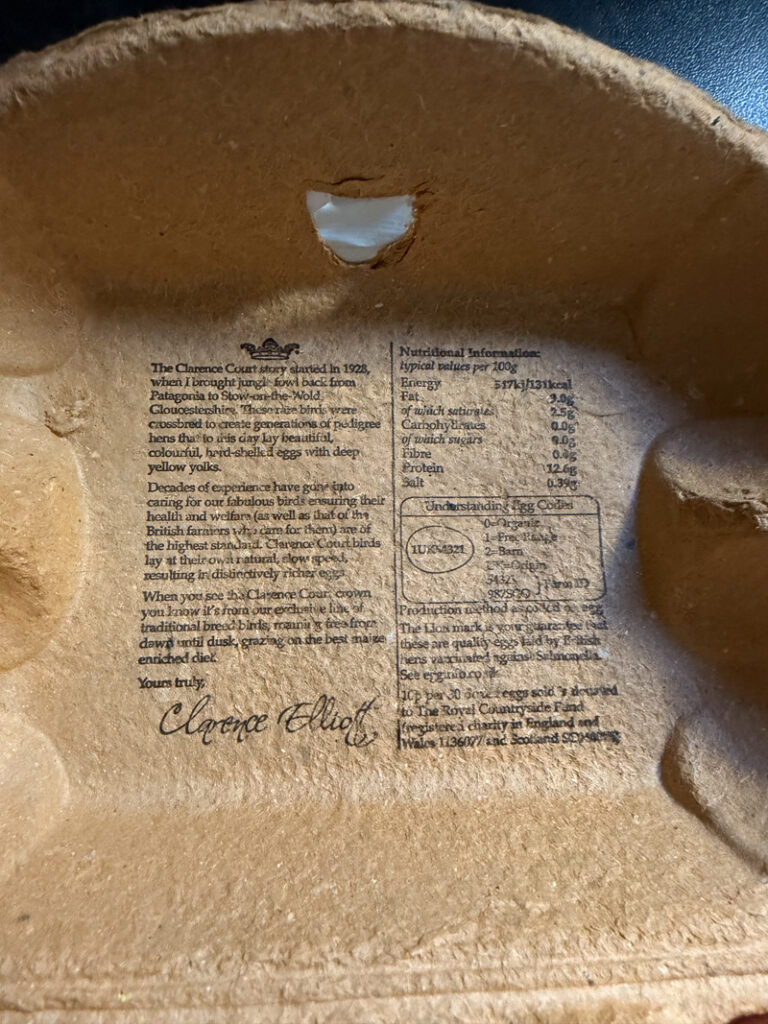 The Clarence Court story started in 1928,
when I brought jungle fowl back from
Patagonia to Stow-on-the-Wold
Gloucestershire. These rare birds were
crossbred to create generations of pedigree
hens that to this day lay beautiful,
colourful, hard-shelled eggs with deep
yellow yolks.
Decades of experience have gone into
caring for our fabulous birds ensuring their
health and welfare (as well as that of the
British farmers who care for them) are of
the highest standard. Clarence Court birds
lay at their own natural, slow speed,
resulting in distinctively richer eggs.
When you see the Clarence Court crown
you know it's from our exclusive line of
traditional breed birds, roaming free from
dawn until dusk, grazing on the best maize
enriched diet.
Yours truly,
Clarence Elliott
Nutritional Information:
typical values per 100g
Energy 547kj/131kcal
Fat 9.0g
of which saturates 2.5g
Carbohydrates 0.0g
of which sugars 0.0g
Fibre
Protein 12.6g
Salt 0.39g
Understanding Egg Codes
1UK54321
0-Organic
1-Free Range
2-Barn
UK-Origin
54321
Farm ID
Production method as coded on egg
The Lion mark is your guarantee that
these are quality eggs laid by British
hens vaccinated against Salmonella.
See egginfo.co.uk
10p per 30 dozen eggs sold is donated
to The Royal Countryside Fund
(registered charity in England and
Wales 1136077 and Scotland